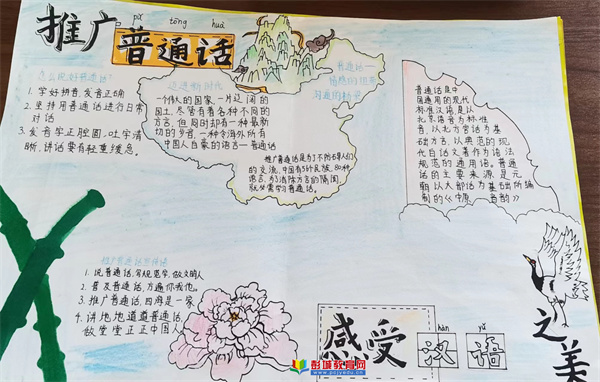 pǔ tōng huà
推广普通话
怎么说好普通话?
1. 学好拼音,发音正确
2. 坚持用普通话进行日常
对话
3. 发音字正腔圆,吐字清
晰,讲话要有轻重缓急。
迈进新时代
一个伟大的国家,一片辽阔的
国土,尽管有着各种不同的
方言,但同时却有一种最亲
切的乡音,一种令海外所有
中国人自豪的语言—普通话
普通话—
情感的纽带
沟通的桥梁
推广普通话是为了不防碍人们
的交流,中国有56个民族,80种
语言,为了消除方言的隔阂
就必需学习普通话。
普通话是中
国通用的现代
标准汉语,是以
北京语音为标准
音,以北方官话为基
础方言,以典范的现
代白话文著作为语法
规范的通用语。普通
话的主要来源是元
朝以入部话为基础所编
制的《中原音韵》
推广普通话宣传语
1. 说普通话,写规范字,做文明人
2. 普及普通话,方便你我他。
3. 推广普通话,四海是一家
4. 讲地地道道普通话,
做堂堂正正中国人
感受
hàn yǔ
汉语
之美
彭城教育网